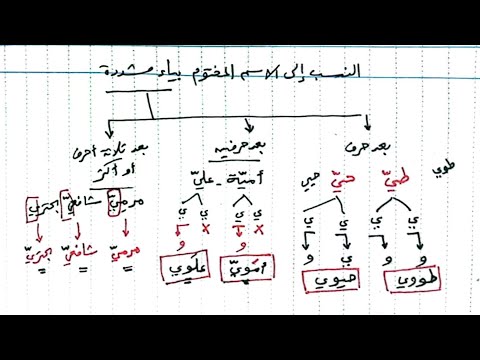 النسب إلى الاسم المختوم بياء مشددة
بعد حرف
بعد حرفين
بعد ثلاثة أحرف
أو أكثر
طوي طيّ حيّ حيي
أميّة - عليّ
مرميّ شافعيّ بحتريّ
ي ي ي ي
ي ي ي ي
x x
و و ي و
و و
طووي حيوي
أمَويّ علَوي
مرميّ شافعيّ بحتريّ